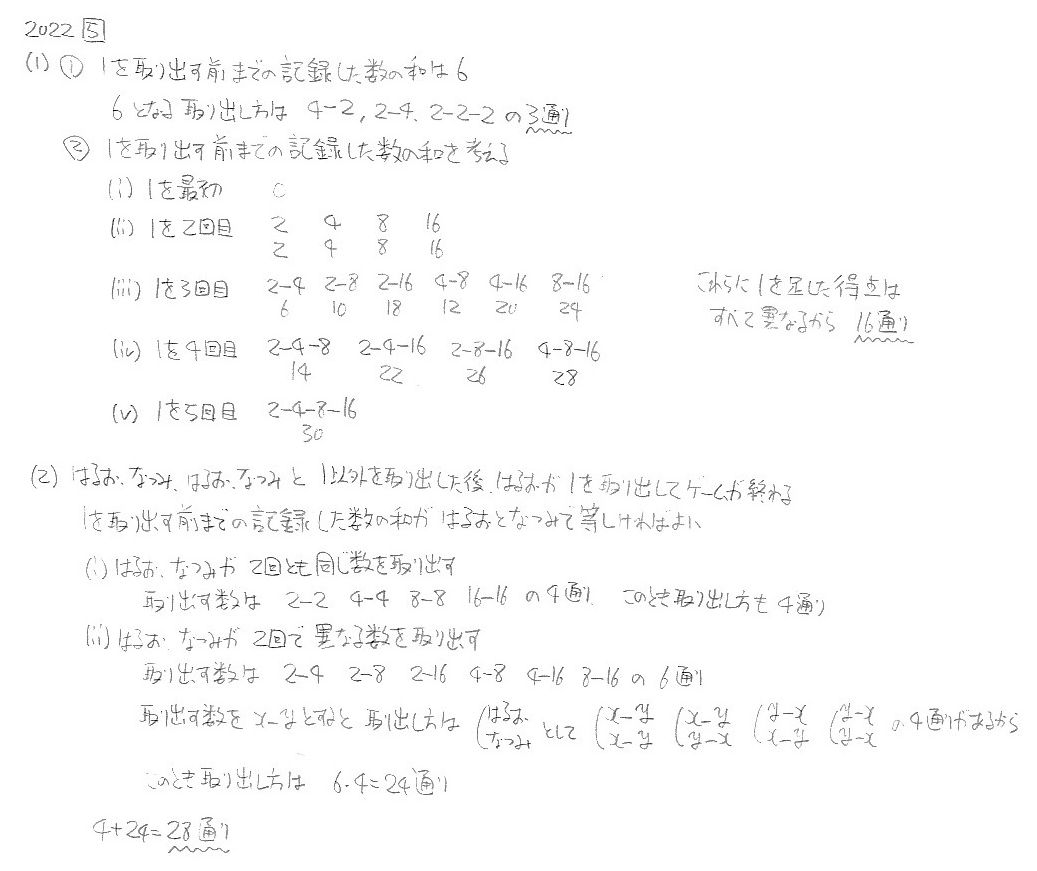 2022 5
(1) ① 1を取り出す前までの記録した数の和は6
6となる取り出し方は 4-2, 2-4, 2-2-2 の3通り
② 1を取り出す前までの記録した数の和を考える
(i) 1を最初 0
(ii) 1を2回目 2 4 8 16
2 4 8 16
(iii) 1を3回目 2-4 2-8 2-16 4-8 4-16 8-16 これらに1を足した得点は
6 10 18 12 20 24 すべて異なるから 16通り
(iv) 1を4回目 2-4-8 2-4-16 2-8-16 4-8-16
14 22 26 28
(v) 1を5回目 2-4-8-16
30
(2) はるお、なつみ、はるお、なつみと 1以外を取り出した後、はるおが1を取り出してゲームが終わる
1を取り出す前までの記録した数の和が はるおとなつみで等しければよい
(i) はるお、なつみが 2回とも同じ数を取り出す
取り出す数は 2-2 4-4 8-8 16-16 の4通り このとき取り出し方も 4通り
(ii) はるお、なつみが 2回で異なる数を取り出す
取り出す数は 2-4 2-8 2-16 4-8 4-16 8-16 の 6通り
取り出す数を x-yとすると 取り出し方は (はるお なつみ として (x-y x-y (x-y y-x (y-x x-y (y-x y-x の4通りがあるから
このとき取り出し方は 6・4=24通り
4+24=28通り